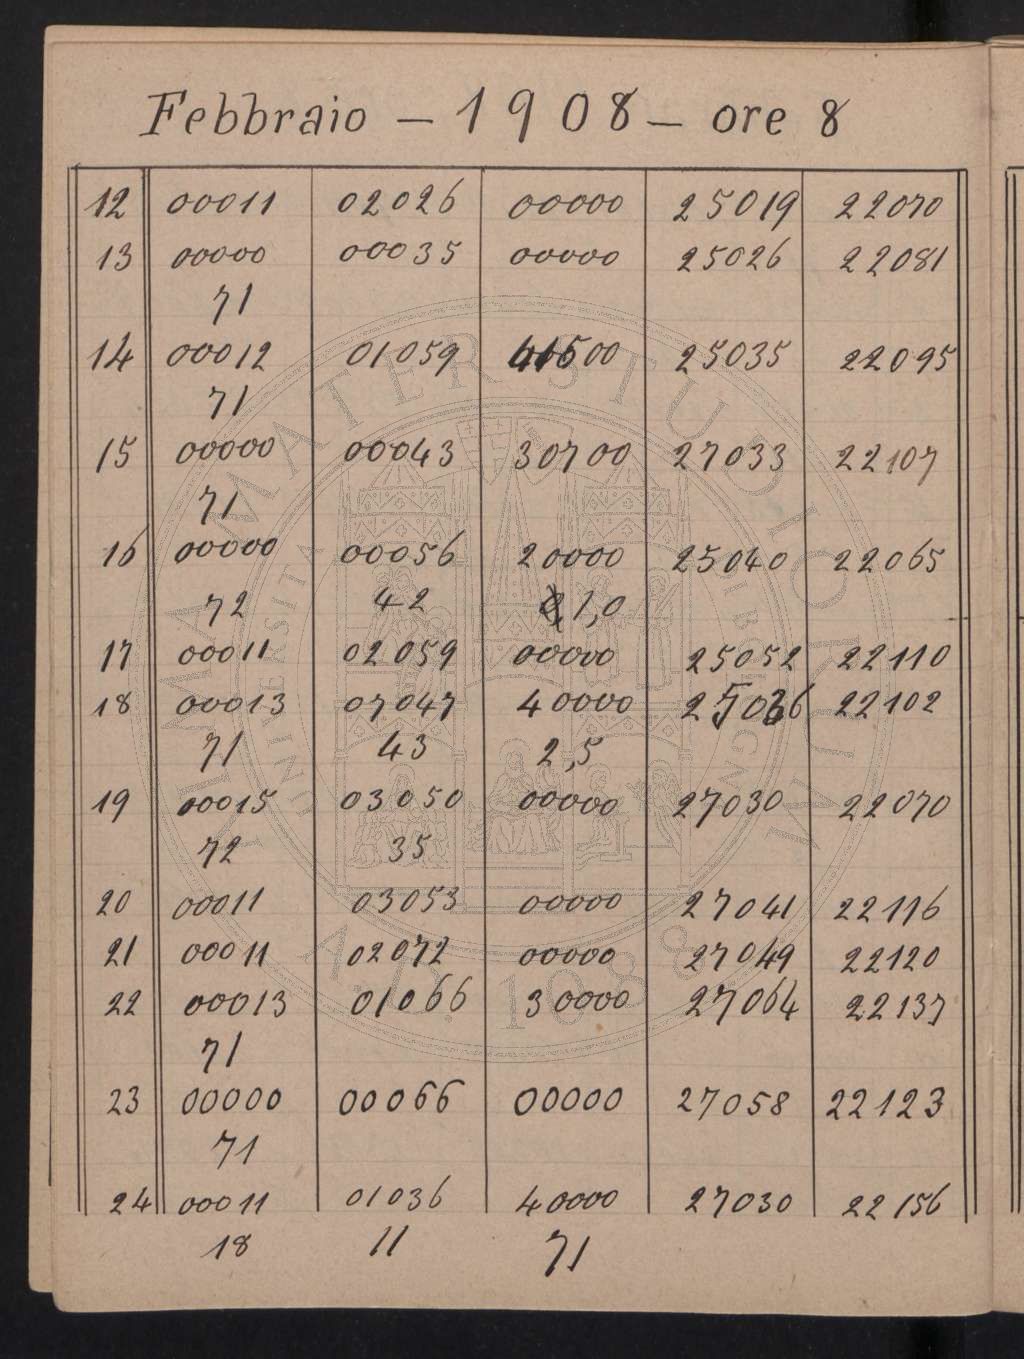 Febbraio - 1908 - ore 8
12 00011 02026 00000 25019 22070
13 00000 00035 00000 25026 22081
71
14 00012 01059 41500 25035 22095
71
15 00000 00043 30700 27033 22107
71
16 00000 00056 20000 25040 22065
72 42 1,0
17 00011 02059 00000 25052 22110
18 00013 07047 40000 25036 22102
71 43 2,5
19 00015 03050 00000 27030 22070
72 35
20 00011 03053 00000 27041 22116
21 00011 02072 00000 27049 22120
22 00013 01066 30000 27064 22137
71
23 00000 00066 00000 27058 22123
71
24 00011 01036 40000 27030 22156
18 11 71
ALMA MATER STUDIORUM
UNIVERSITÀ DI BOLOGNA
A.D. 1088